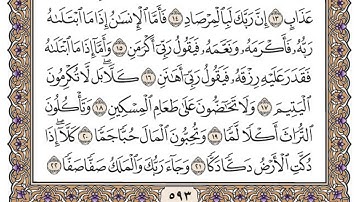 عَذَابٍ ١٣ إِنَّ رَبَّكَ لَبِٱلۡمِرۡصَادِ ١٤ فَأَمَّا ٱلۡإِنسَٰنُ إِذَا مَا ٱبۡتَلَىٰهُ
رَبُّهُۥ فَأَكۡرَمَهُۥ وَنَعَّمَهُۥ فَيَقُولُ رَبِّيٓ أَكۡرَمَنِ ١٥ وَأَمَّآ إِذَا مَا ٱبۡتَلَىٰهُ
فَقَدَرَ عَلَيۡهِ رِزۡقَهُۥ فَيَقُولُ رَبِّيٓ أَهَٰنَنِ ١٦ كَلَّاۖ بَل لَّا تُكۡرِمُونَ
ٱلۡيَتِيمَ ١٧ وَلَا تَحَٰٓضُّونَ عَلَىٰ طَعَامِ ٱلۡمِسۡكِينِ ١٨ وَتَأۡكُلُونَ
ٱلتُّرَاثَ أَكۡلٗا لَّمّٗا ١٩ وَتُحِبُّونَ ٱلۡمَالَ حُبّٗا جَمّٗا ٢٠ كَلَّآۖ إِذَا
دُكَّتِ ٱلۡأَرۡضُ دَكّٗا دَكّٗا ٢١ وَجَآءَ رَبُّكَ وَٱلۡمَلَكُ صَفّٗا صَفّٗا ٢٢
٥٩٣